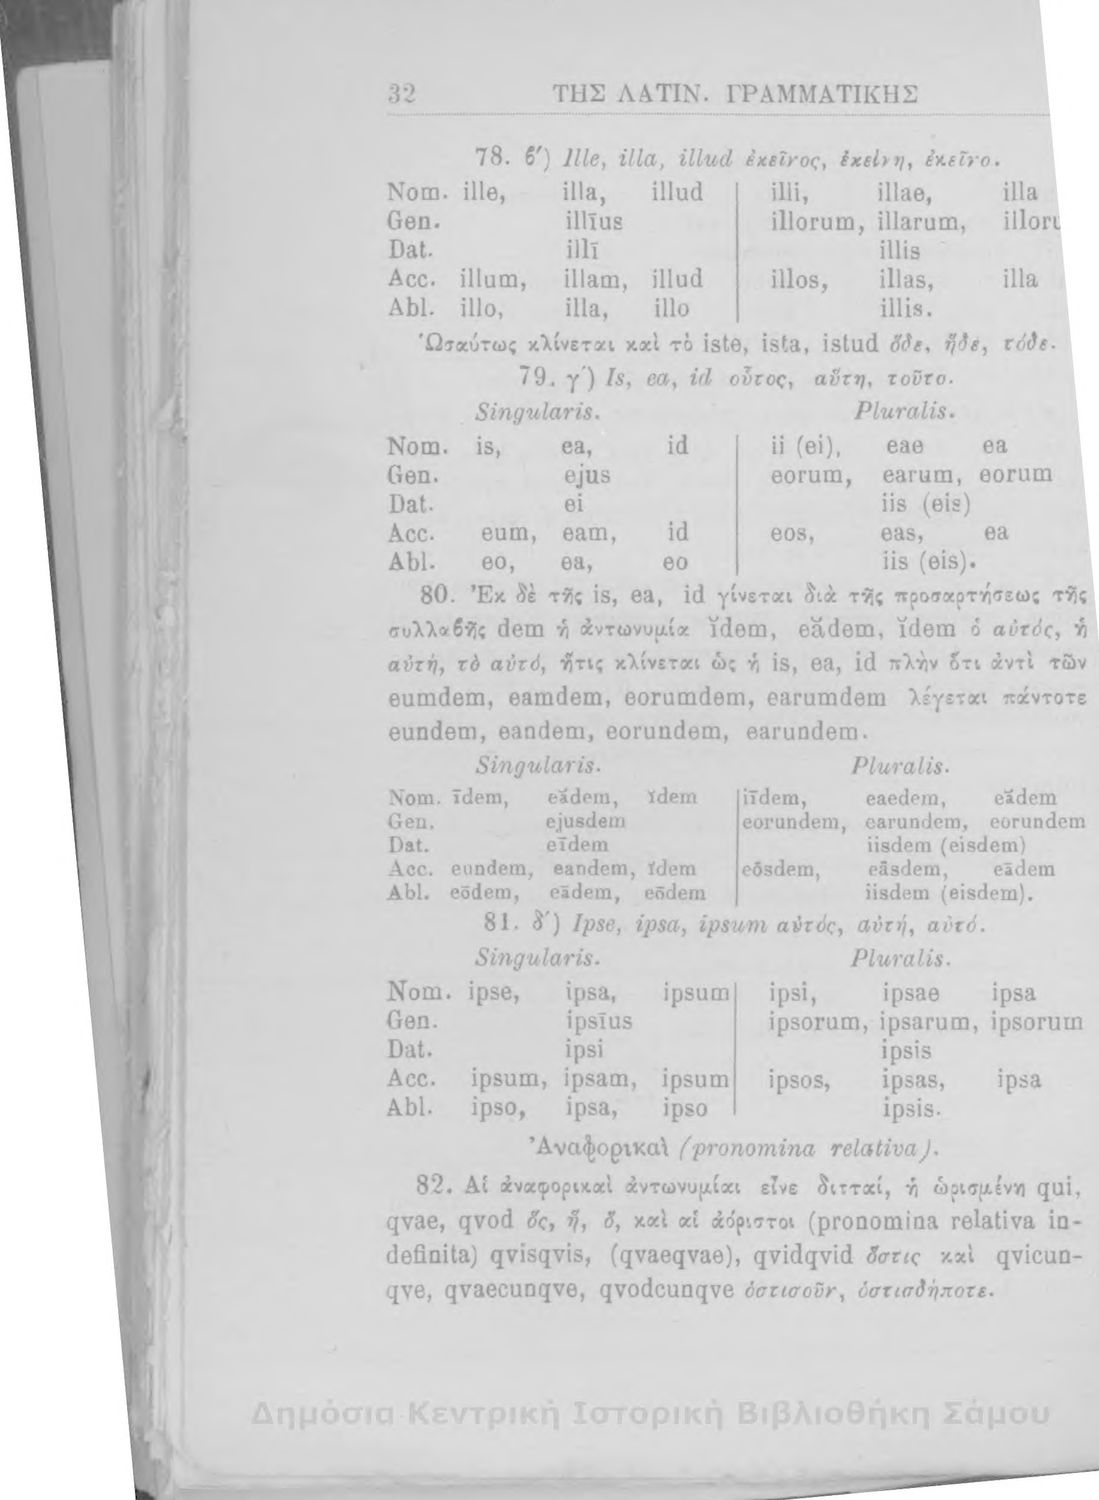 32 ΤΗΣ ΛΑΤΙΝ. ΓΡΑΜΜΑΤΙΚΗΣ
78. ϐ′) Ille, illa, illud ἐκεῖνος, ἐκείνη, ἐκεῖνο.
Nom. ille, illa, illud illi, illae, illa
Gen. illīus illorum, illarum, illoru
Dat. illī illis
Acc. illum, illam, illud illos, illas, illa
Abl. illo, illa, illo illis.
Ὡσαύτως κλίνεται καὶ τὸ iste, ista, istud ὅδε, ἥδε, τόδε.
79. γ′) Is, ea, id οὗτος, αὕτη, τοῦτο.
Singularis. Pluralis.
Nom. is, ea, id ii (ei), eae ea
Gen. ejus eorum, earum, eorum
Dat. ei iis (eis)
Acc. eum, eam, id eos, eas, ea
Abl. eo, ea, eo iis (eis).
80. Ἐκ δὲ τῆς is, ea, id γίνεται διὰ τῆς προσαρτήσεως τῆς
συλλαϐῆς dem ἡ ἀντωνυμία īdem, eădem, ĭdem ὁ αὐτός, ἡ
αὐτή, τὸ αὐτό, ἥτις κλίνεται ὡς ἡ is, ea, id πλὴν ὅτι ἀντὶ τῶν
eumdem, eamdem, eorumdem, earumdem λέγεται πάντοτε
eundem, eandem, eorundem, earundem.
Singularis. Pluralis.
Nom. īdem, eădem, ĭdem iīdem, eaedem, eădem
Gen. ejusdem eorundem, earundem, eorundem
Dat. eīdem iisdem (eisdem)
Acc. eundem, eandem, ĭdem eōsdem, eāsdem, eădem
Abl. eōdem, eādem, eōdem iisdem (eisdem).
81. δ′) Ipse, ipsa, ipsum αὐτός, αὐτή, αὐτό.
Singularis. Pluralis.
Nom. ipse, ipsa, ipsum ipsi, ipsae ipsa
Gen. ipsīus ipsorum, ipsarum, ipsorum
Dat. ipsi ipsis
Acc. ipsum, ipsam, ipsum ipsos, ipsas, ipsa
Abl. ipso, ipsa, ipso ipsis.
Ἀναφορικαὶ (pronomina relativa).
82. Αἱ ἀναφορικαὶ ἀντωνυμίαι εἶνε διτταί, ἡ ὡρισμένη qui,
qvae, qvod ὅς, ἥ, ὅ, καὶ αἱ ἀόριστοι (pronomina relativa in-
definita) qvisqvis, (qvaeqvae), qvidqvid ὅστις καὶ qvicun-
qve, qvaecunqve, qvodcunqve ὁστισοῦν, ὁστισδήποτε.
Δημόσια Κεντρική Ιστορική Βιβλιοθήκη Σάμου